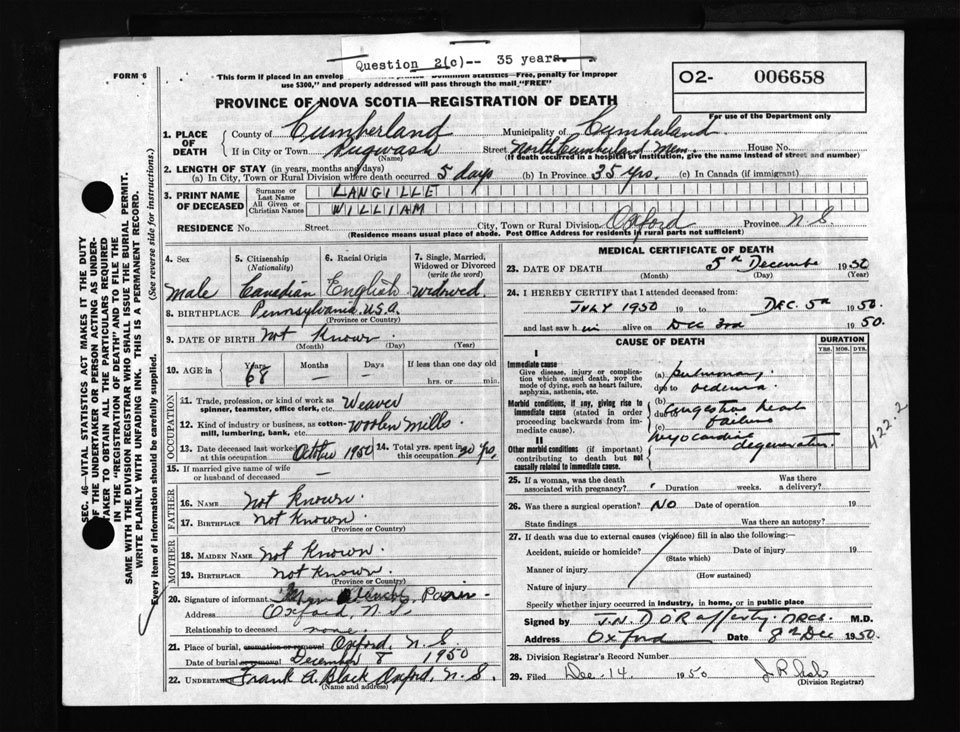 Question 2(c)-- 35 years.
FORM 6
This form if placed in an envelop Dominion Statistics—Free, penalty for improper
use $300," and properly addressed will pass through the mail "FREE"
O2- 006658
For use of the Department only
PROVINCE OF NOVA SCOTIA—REGISTRATION OF DEATH
1. PLACE OF DEATH
County of Cumberland Municipality of Cumberland.
If in City or Town Pugwash Street North Cumberland Mem. House No.
(Name) (If death occurred in a hospital or institution, give the name instead of street and number)
2. LENGTH OF STAY (in years, months and days)
(a) In City, Town or Rural Division where death occurred 5 days (b) In Province 35 yrs. (c) In Canada (if immigrant)
3. PRINT NAME OF DECEASED
Surname or Last Name LANGILLE
All Given or Christian Names WILLIAM
RESIDENCE No. Street City, Town or Rural Division Oxford Province N.S
(Residence means usual place of abode. Post Office Address for residents in rural parts not sufficient)
SEC. 46—VITAL STATISTICS ACT MAKES IT THE DUTY
OF THE UNDERTAKER OR PERSON ACTING AS UNDER-
TAKER TO OBTAIN ALL THE PARTICULARS REQUIRED
IN THE "REGISTRATION OF DEATH" AND TO FILE THE
SAME WITH THE DIVISION REGISTRAR WHO SHALL ISSUE THE BURIAL PERMIT.
WRITE PLAINLY WITH UNFADING INK. THIS IS A PERMANENT RECORD.
Every item of information should be carefully supplied. (See reverse side for instructions.)
4. Sex 5. Citizenship (Nationality) 6. Racial Origin 7. Single, Married, Widowed or Divorced (write the word)
Male Canadian English widowed.
8. BIRTHPLACE Pennsylvania. U.S.A.
(Province or Country)
9. DATE OF BIRTH Not Known
(Month) (Day) (Year)
10. AGE in Years Months Days If less than one day old
68 — — hrs. or min.
OCCUPATION
11. Trade, profession or kind of work as spinner, teamster, office clerk, etc. Weaver
12. Kind of industry or business, as cotton-mill, lumbering, bank, etc. woolen mills
13. Date deceased last worked at this occupation October 1950 14. Total yrs. spent in this occupation 20 yrs.
15. If married give name of wife or husband of deceased —
FATHER
16. NAME Not Known.
17. BIRTHPLACE Not Known.
(Province or Country)
MOTHER
18. MAIDEN NAME Not Known.
19. BIRTHPLACE Not Known.
(Province or Country)
20. Signature of informant
Address Oxford, N.S.
Relationship to deceased none.
21. Place of burial, cremation or removal Oxford, N.S
Date of burial or removal December 8 1950
22. Undertaker Frank A. Black Oxford, N.S.
(Name and address)
MEDICAL CERTIFICATE OF DEATH
23. DATE OF DEATH 5th December 1950
(Month) (Day) (Year)
24. I HEREBY CERTIFY that I attended deceased from:
JULY 1950 19 to DEC. 5th 1950.
and last saw h im alive on Dec 3rd 1950.
CAUSE OF DEATH DURATION
YRS. MOS. DYS.
I
Immediate cause
Give disease, injury or complication which caused death, NOT the mode of dying, such as heart failure, asphyxia, asthenia, etc.
(a) Pulmonary
due to oedema
Morbid conditions, if any, giving rise to immediate cause (stated in order proceeding backwards from immediate cause).
(b) congestive heart
due to failure
(c) myocardial
degeneration
422.2
II
Other morbid conditions (if important) contributing to death but not causally related to immediate cause.
25. If a woman, was the death associated with pregnancy? Duration weeks. Was there a delivery?
26. Was there a surgical operation? NO Date of operation 19
State findings Was there an autopsy?
27. If death was due to external causes (violence) fill in also the following:—
Accident, suicide or homicide? Date of injury 19
(State which)
Manner of injury
(How sustained)
Nature of injury
Specify whether injury occurred in industry, in home, or in public place
Signed by J.N. D O'Rafferty. M.D.
Address Oxford Date 8th Dec 1950.
28. Division Registrar's Record Number
29. Filed Dec. 14. 1950
(Division Registrar)